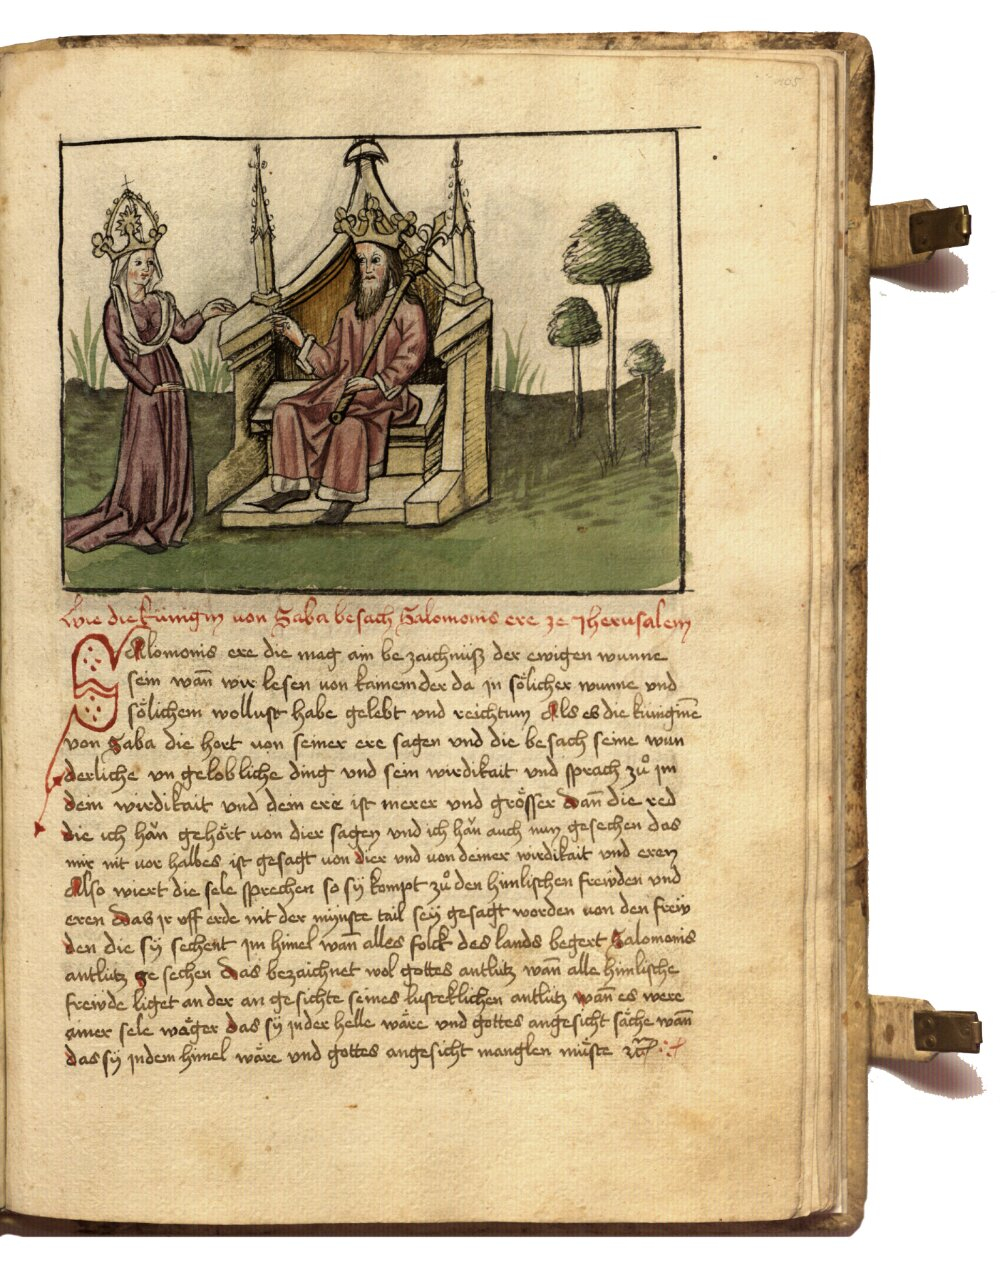 105
Wie die Künigin von Saba besach Salomonis ere ze Jherusalem
Salomonis ere die mag ain bezaichnuß der ewigen wunne
sein wañ wir lesen von kainem der da jn sölicher wunne und
sölichem wollust habe gelebt vnd reichtum Als es die künginne
von Saba die hort von seiner ere sagen vnd die besach seine wun
derliche vn gelobliche ding vnd sein wirdikait vnd sprach zů im
dein wirdikait vnd dein ere ist merer vnd grösser dañ die red
die ich hän gehört von dier sagen vnd ich hän auch nun gesechen das
mir nit vor halbes ist gesagt von dier vnd von deiner wirdikait vnd eren
Also wiert die sele sprechen so sÿ kompt zů den himlischen freẅden vnd
eren das jr vff erde nit der mÿnste tail seÿ gesagt worden von den freẅ
den die sÿ sechent jm himel wañ alles folck des lands begert Salomonis
antlütz ge sechen das bezaichnet wol gottes antlütz wañ alle himlische
freẅde liget an der an gesichte seines lusteklichen antlütz wañ es were
ainer sele wäger das sÿ jn der helle wäre vnd gottes angesicht säche wañ
das sÿ jn dem himel wäre vnd gottes angesicht manglen müste